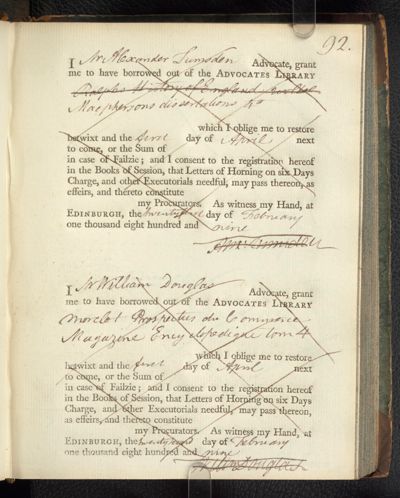 92.
I Mr Alexander Lumsden Advocate, grant
me to have borrowed out of the ADVOCATES LIBRARY
Ralphs History of England
Macphersons dissertations &c
which I oblige me to restore
betwixt and the first day of April next
to come, or the Sum of
in case of Failzie; and I consent to the registration hereof
in the Books of Session, that Letters of Horning on six Days
Charge, and other Executorials needful, may pass thereon, as
effeirs, and thereto constitute
my Procurators. As witness my Hand, at
EDINBURGH, the day of February
one thousand eight hundred and nine
I Mr William Douglas Advocate, grant
me to have borrowed out of the ADVOCATES LIBRARY
Morelet Prospectus du Commerce
Magazine Encyclopedique tom 4
which I oblige me to restore
betwixt and the first day of April next
to come, or the Sum of
in case of Failzie; and I consent to the registration hereof
in the Books of Session, that Letters of Horning on six Days
Charge, and other Executorials needful, may pass thereon,
as effeirs, and thereto constitute
my Procurators. As witness my Hand, at
EDINBURGH, the day of February
one thousand eight hundred and nine
William Douglas